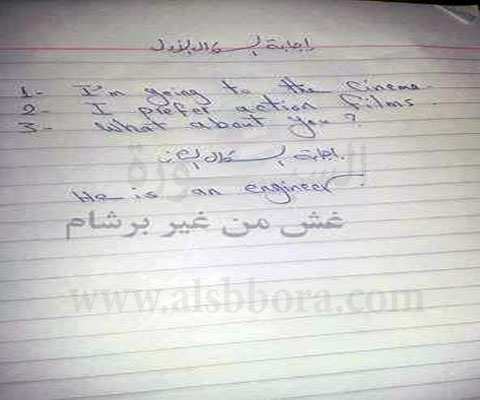 إجابة السؤال الأول
1- I'm going to the cinema.
2- I prefer action films.
3- What about you?
إجابة السؤال الثانى
السبورة
He is an engineer.
غش من غير برشام
www.alsbbora.com